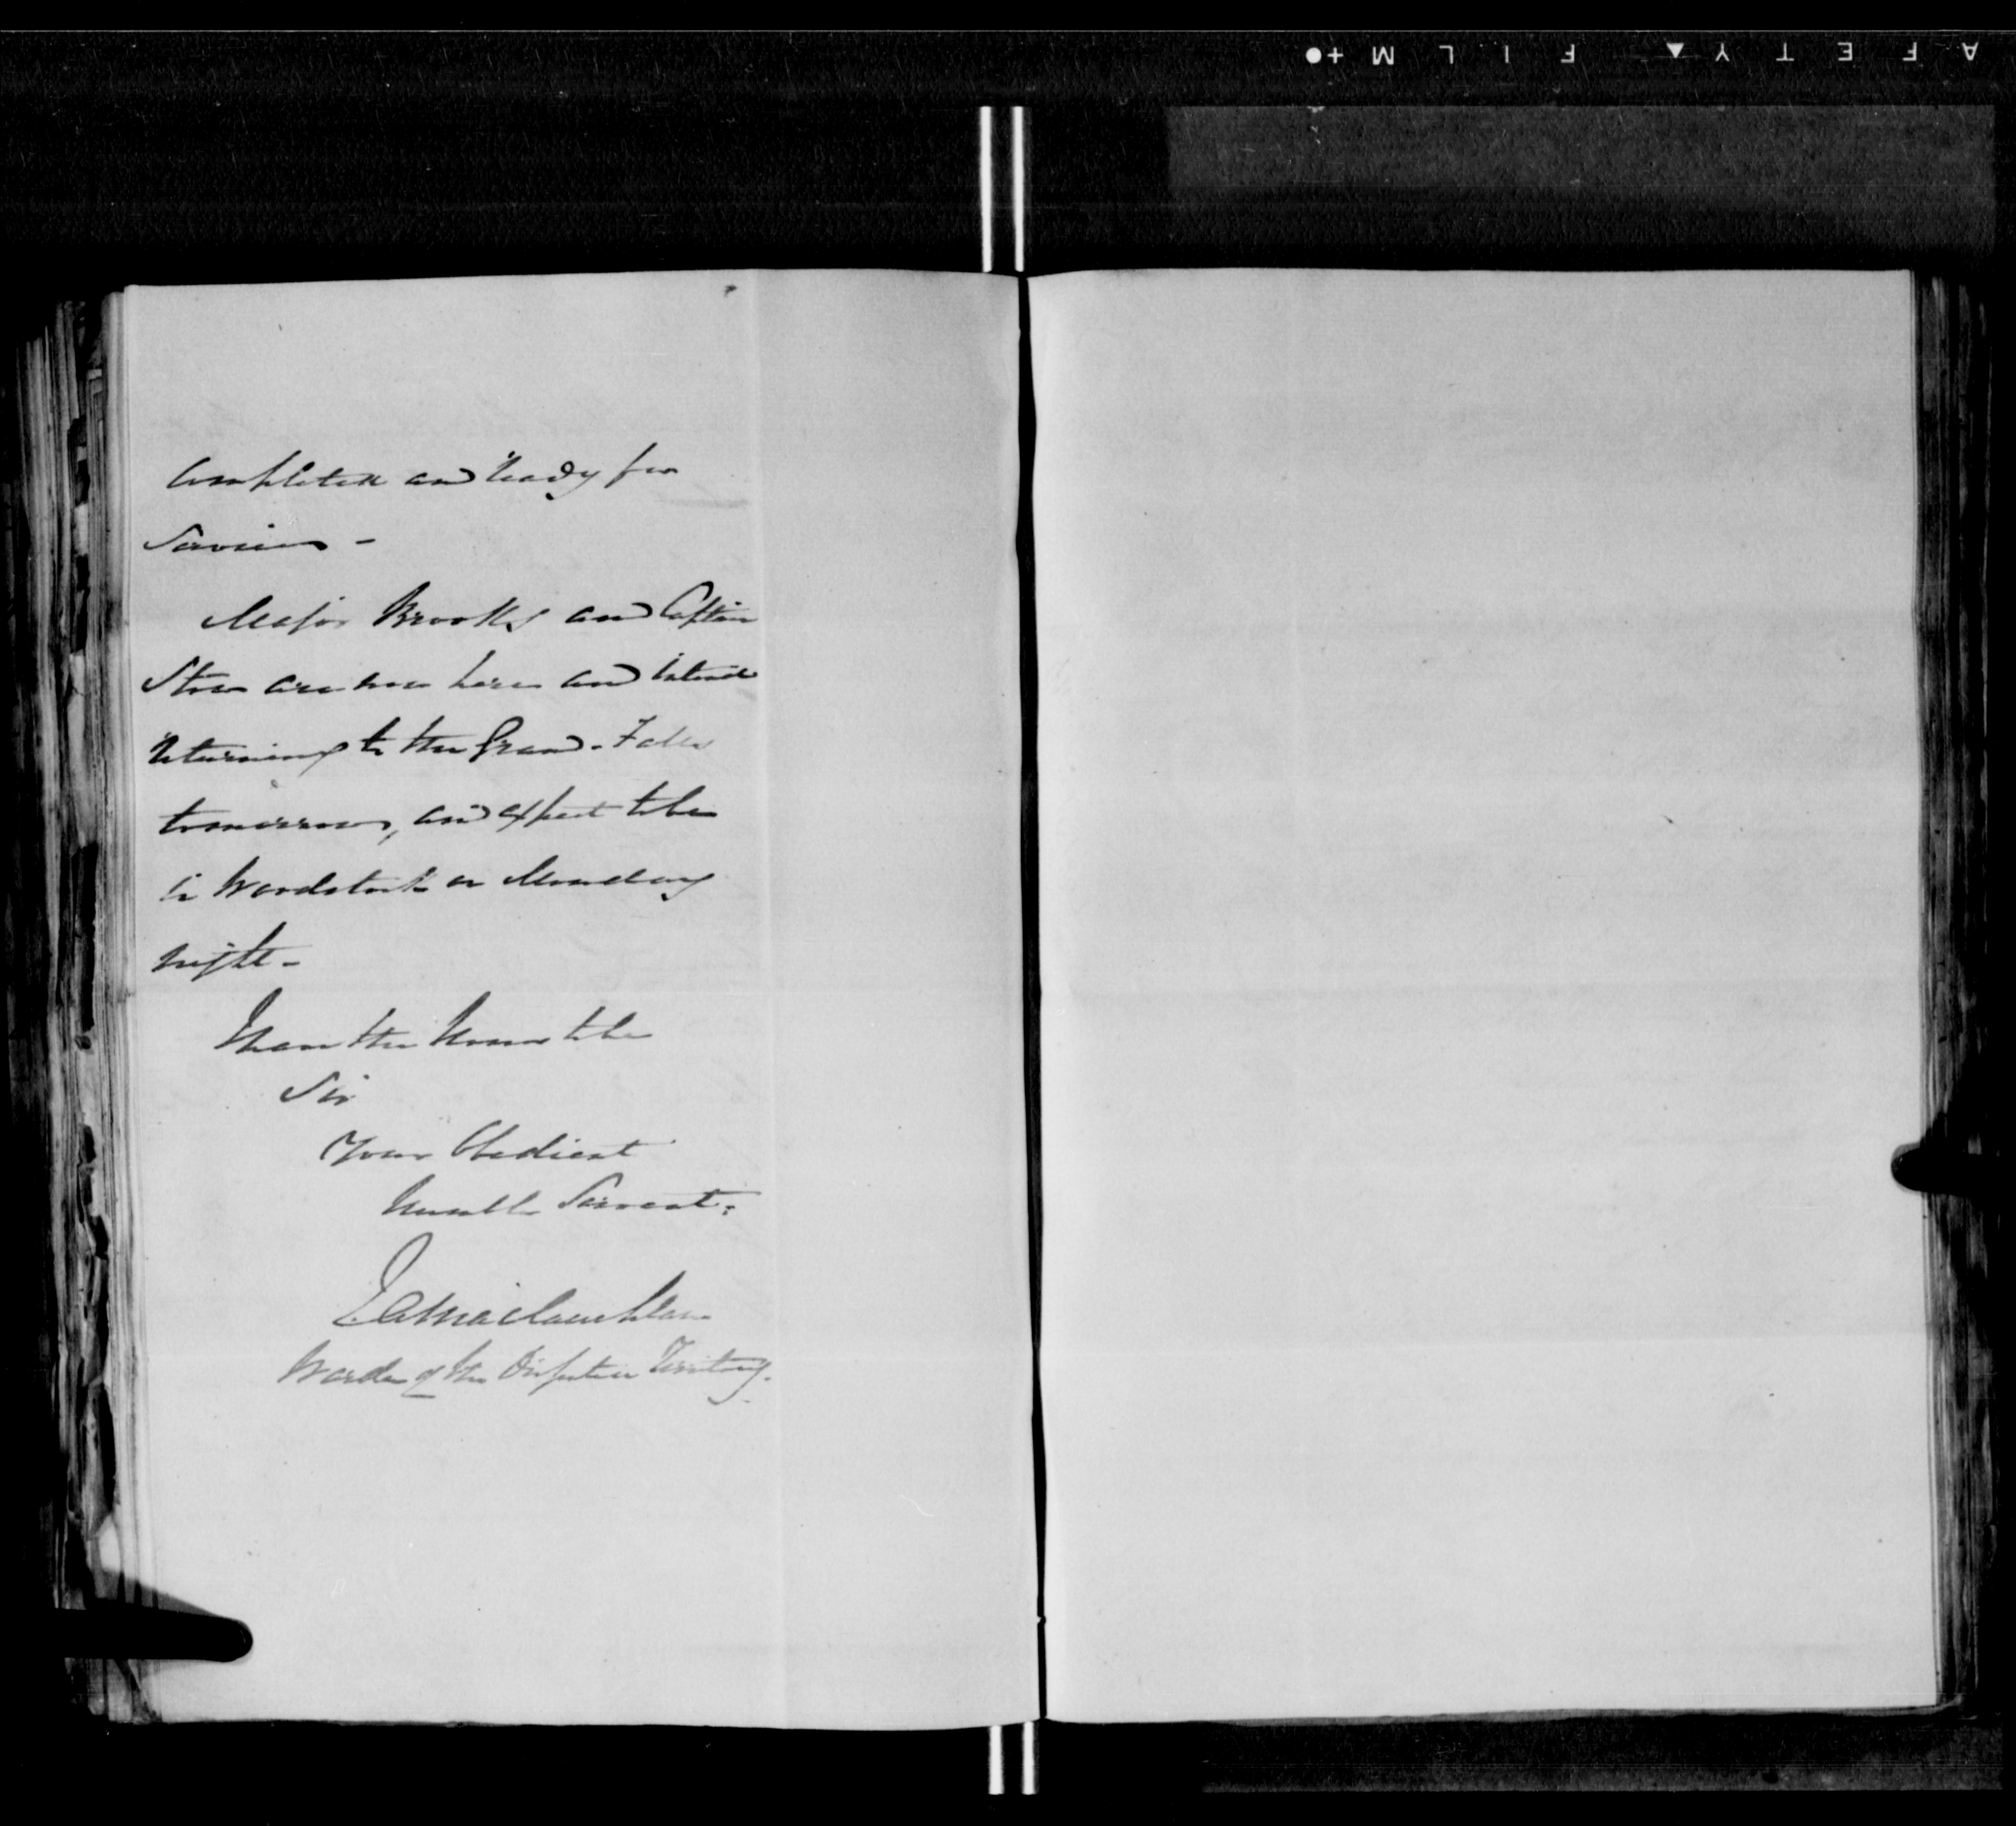 SAFETY FILM
Completed and ready for
Service -
Major Brookes and Captain
Stow are now here and intend
returning to the Grand-Falls
tomorrow, and expect to be
in Woodstock on Monday
night -
I have the honor to be
Sir
Your Obedient
humble Servant:
J A Maclauchlan
Warden of the Disputed Territory.